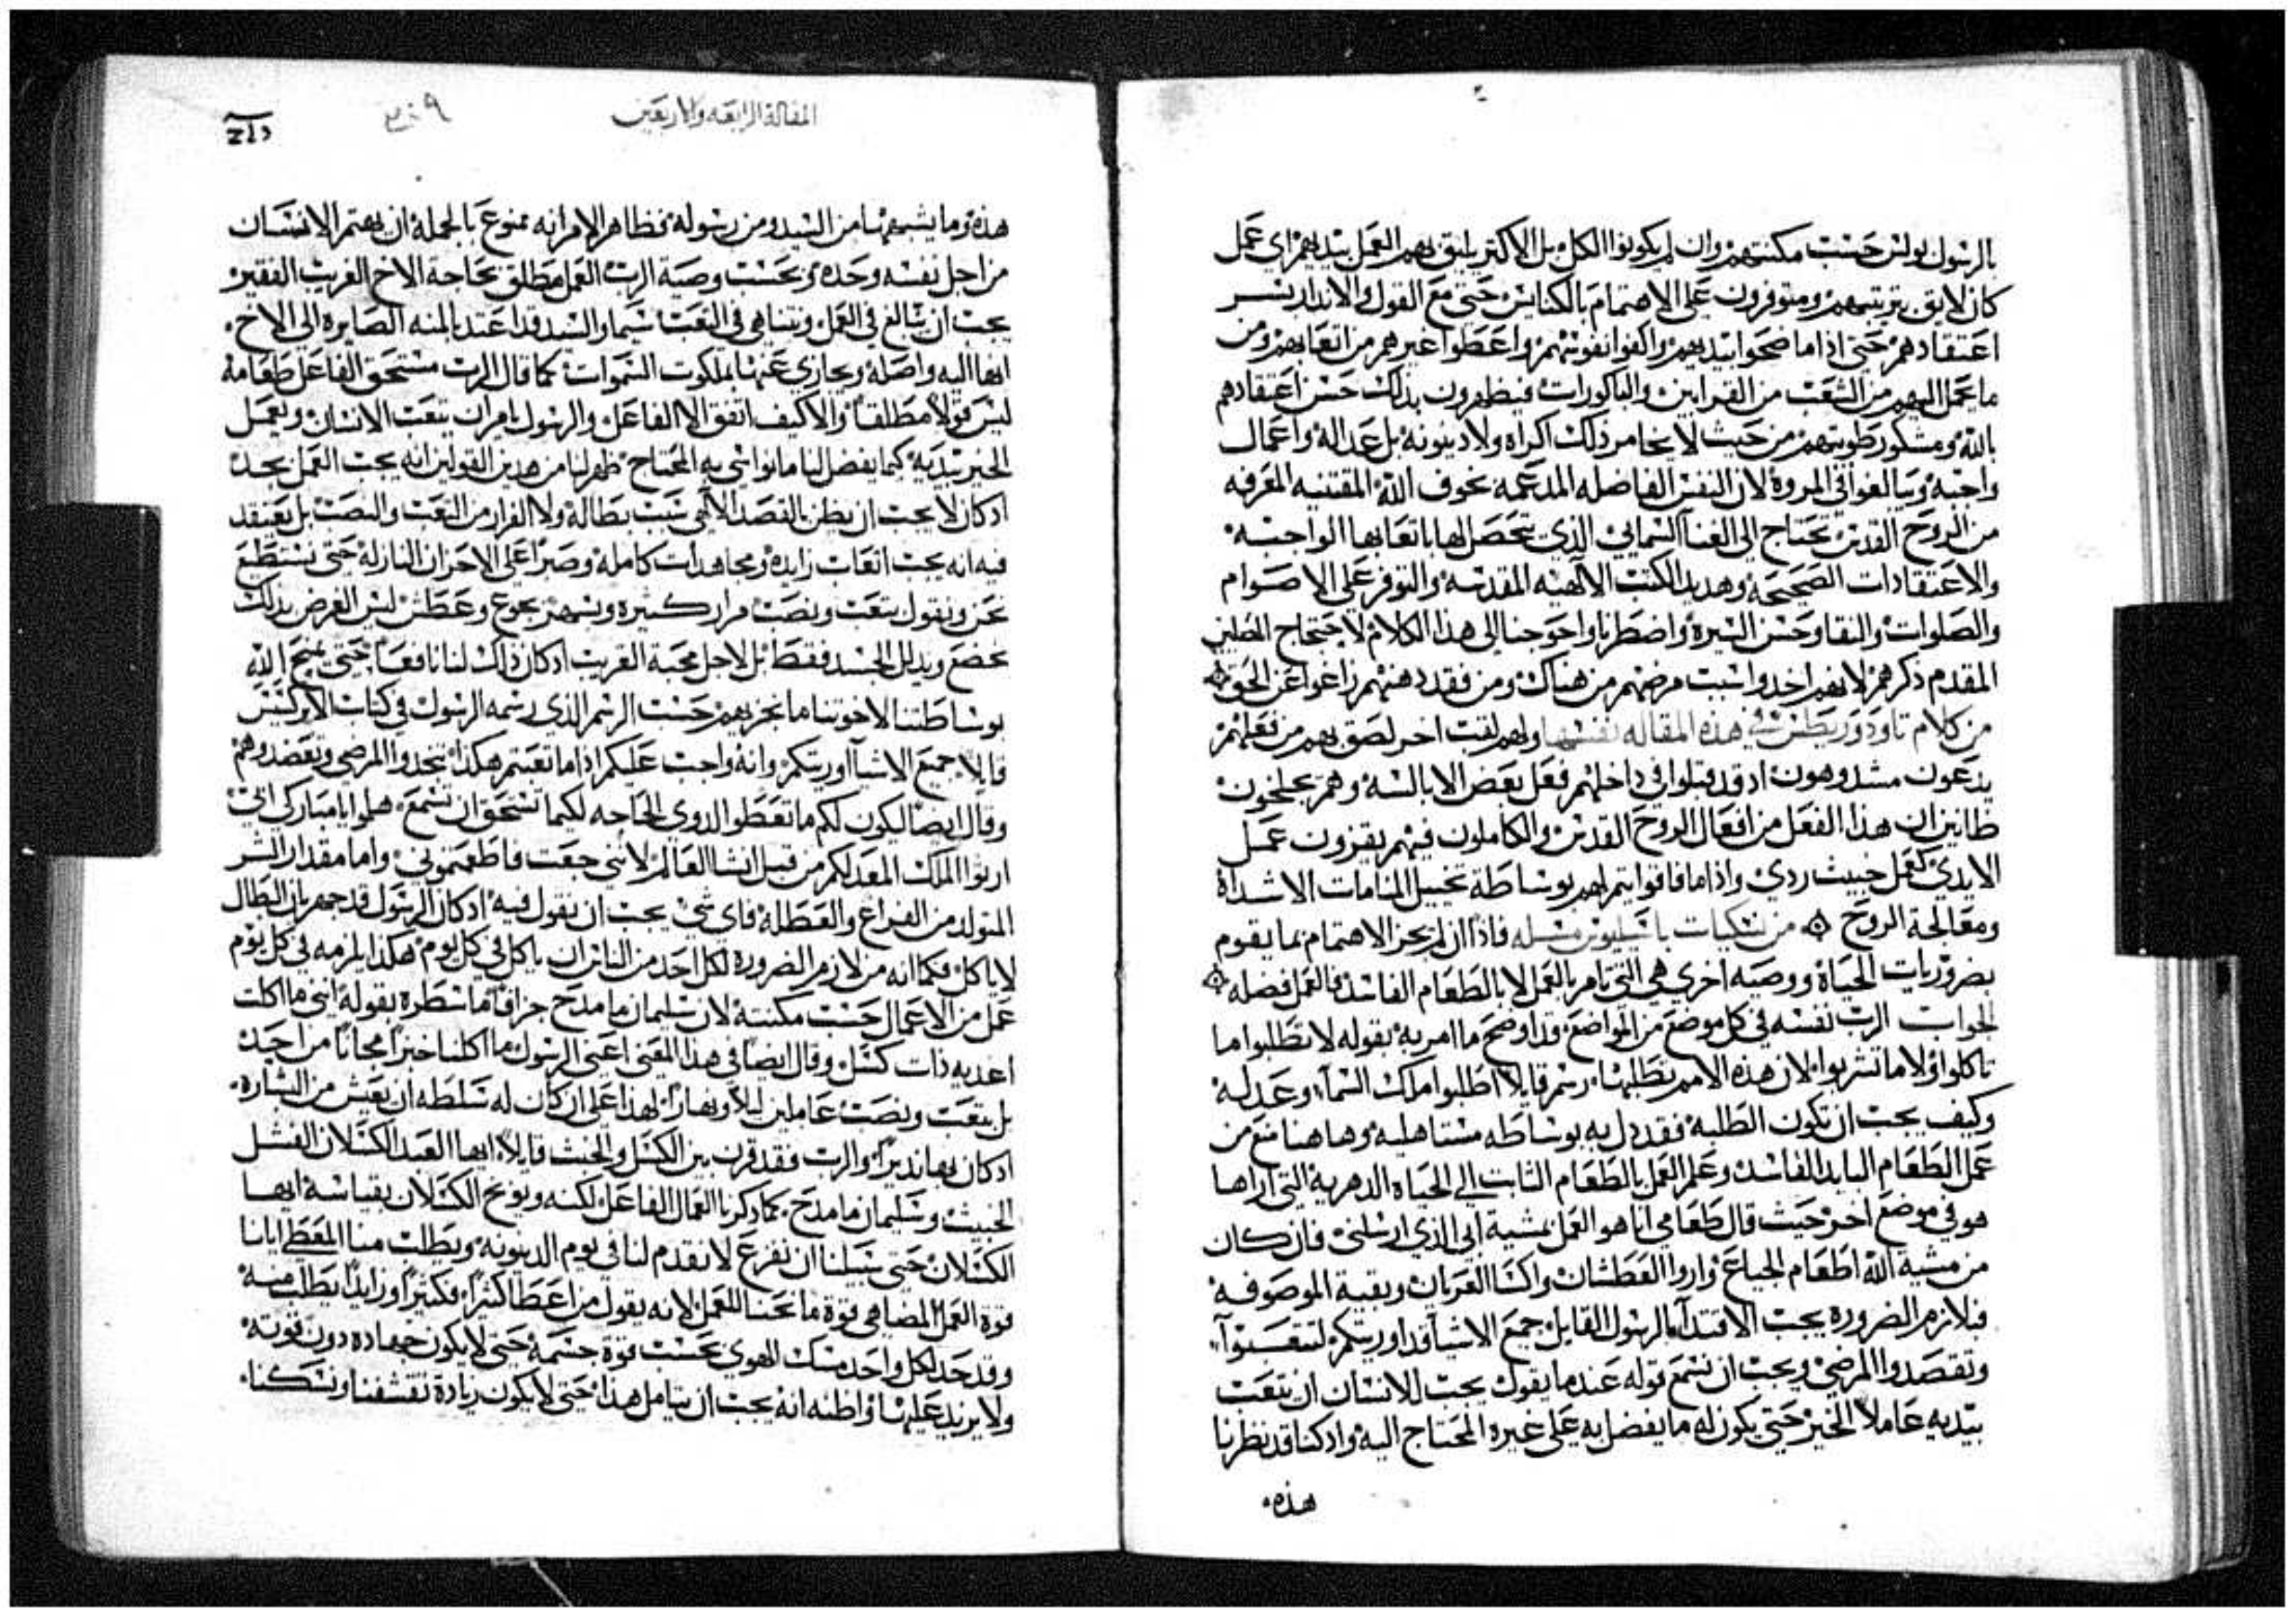 بالرسول بولس حسب مكنتهم وان لم يكونوا الكل بل الاكتر يليق بهم العمل بيديهم اي عمل
كان لايق برتبتهم ومتوفرون على الاهتمام بالكنايس حتى مع القول والانذار بسر
اعتقادهم حتى اذا ما ضحوا بيديهم واكفوا نفوسهم واعطوا غيرهم من اتعابهم ومن
ما يحمل اليهم من الشعب من القرابين والباكورات فيظهرون بذلك حسن اعتقادهم
بالله ومشكور طويتهم من حيث لا يخامر ذلك اكراه ولا دينونه بل عداله واعمال
واجبه ويبالغوا في المروة لان النفس الفاضله المدعمه بخوف الله المقتنيه المعرفه
من الروح القدس تحتاج الى الغنا السمايي الذي يتحصل لها باتعابها الواجبه
والاعتقادات الصحيحه وهديد الكتب الالهيه المقدسه والتوفر على الاصوام
والصلوات والنقا وحسن السيرة واضطرنا واحوجنا الى هذا الكلام لاحتجاج المصلين
المقدم ذكرهم لانهم اخدوا سبب مرضهم من هناك ومن فقد ذهنهم زاغوا عن الحق
من كلام تاودوريطس في هذه المقاله نفسها ولهم لقب اخر لصق بهم من فعلهم
يدعون مشدوهون اد قد قبلوا في داخلهم فعل بعض الابالسه وهم يجلخون
ظانين ان هذا الفعل من افعال الروح القدس والكاملون فيهم يقرون عمل
الايدي كعمل خبيث ردي واذا ما فاقوا يتم لهم بوساطة تخييل المنامات الاشداة
ومعالجة الروح من نسكيات باسيليوس مسله فاذا ان لم يجز الاهتمام بما يقوم
بضروريات الحياة ووصيه اخرى هي التي تامر بالعمل لا بالطعام الفاسد فالعمل فضله
الجواب الرب نفسه في كل موضع من المواضع قد اوضح ما امر به بقوله لا تطلبوا ما
تاكلوا ولا ما تشربوا لان هذه الامم تطلبها ورسم قايلا اطلبوا ملك السما وعدله
وكيف يجب ان تكون الطلبه فقد دل به بوساطه مستاهليه وهاهنا منع من
عمل الطعام البايد الفاسد وعلم العمل بالطعام الثابت الى الحياه الدهرية التي اراها
هو في موضع اخر حيث قال طعامي انا هو العمل بمشية ابي الذي ارسلني فان كان
من مشية الله اطعام الجياع وارواا العطشان واكسا العريان وبقية الموصوفه
فبلازم الضروره يجب الاقتدا بالرسول القايل جميع الاشيا قد اوريتكم لتتعبوا
وتقصدوا المرضى ويجب ان نسمع قوله عندما يقول يجب للانسان ان يتعب
بيديه عاملا الخير حتى يكون له ما يفضل به على غيره المحتاج اليه وادكنا قد نظرنا
هذه
المقالة الرابعه والاربعين
هذه وما يشبهها من السيد ومن رسوله فظاهر الامر انه ممنوع بالجملة ان يهتم الانسان
من اجل نفسه وحده وبحسب وصية الرب العمل مطلق بحاجة الاخ القريب الفقير
يجب ان يبالغ في العمل ونتناهى في التعب سيما والسيد قد اعتد بالمنه الصايره الى الاخ
انها اليه واصله ويجازي عنها بملكوت السموات كما قال الرب مستحق الفاعل طعامه
ليس قولا مطلقا والا كيف اتفق الا الفاعل والرسول يامر ان يتعب الانسان ويعمل
الخير بيديه كيما يفضل لنا ما نواسي به المحتاج ظهر لنا من هدين القولين انه يجب العمل بجد
ادكان لا يجب ان يظن بالقصد الالهي سبب بطاله ولا الفرار من التعب والنصب بل يعتقد
فيه انه يجب اتعاب زايده ومجاهدات كامله وصبرا على الاحزان النازله حتى نستطيع
نحن ونقول بتعب ونصب مرار كثيره وبسهر بجوع وعطش ليس الغرض بذلك
نخضع ونذلل الجسد فقط بل لاجل محبة القريب ادكان ذلك لنا نافعا حتى يمنح الله
بوساطتنا لاخوتنا ما نجزيهم حسب الرسم الذي رسمه الرسول في كتاب الابركسيس
قايلا جميع الاشيا اوريتكم وانه واجب عليكم اذا ما تعبتم هكذا تنجدوا المرضى وتعضدوهم
وقال ايضا ليكون لكم ما تعطوا لدوي الحاجه لكيما تستحق ان تسمع هلموا يا مباركي ابي
ارثوا الملك المعد لكم من قبل انشا العالم لانني جعت فاطعمتموني واما مقدار الشر
المتولد من الفراغ والعطله فاي شي يجب ان نقول فيه ادكان الرسول قد جهر بان البطال
لا ياكل فكما انه من لازم الضروره لكل احد من الناس ان ياكل في كل يوم هكذا يلزمه في كل يوم
عمل من الاعمال حسب مكنته لان سليمان ما مدح جزافا ما سطره بقوله انني ما اكلت
اغديه ذات كسل وقال ايضا في هذا المعنى اعني الرسول ما اكلنا خبزا مجانا من احد
بل بتعب ونصب عاملين ليلا ونهارا لهذا على ان كان له سلطه ان يعيش من البشاره
ادكان بها نذيرا والرب فقد قرن بين الكسل والخبث قايلا ايها العبد الكسلان الفشل
الخبيث وسليمان ما مدح كما دكرنا العمال الفاعل لكنه ويوبخ الكسلان بقياسه ايها
الكسلان حتى سبيلنا ان نفزع لا نقدم لنا في يوم الدينونه ويطلب منا المعطي ايانا
قوة العمل المضاهي قوة ما نحنا للعمل لانه يقول من اعطا كثيرا فكثيرا وزايدا يطلب منه
وقد حد لكل واحد مسك الهوى بحسب قوة جسمه حتى لا يكون جهاده دون قوته
ولا يزيد عليها واظنه انه يجب ان يتامل هذا حتى لا يكون زيادة تقشفنا ونسكنا